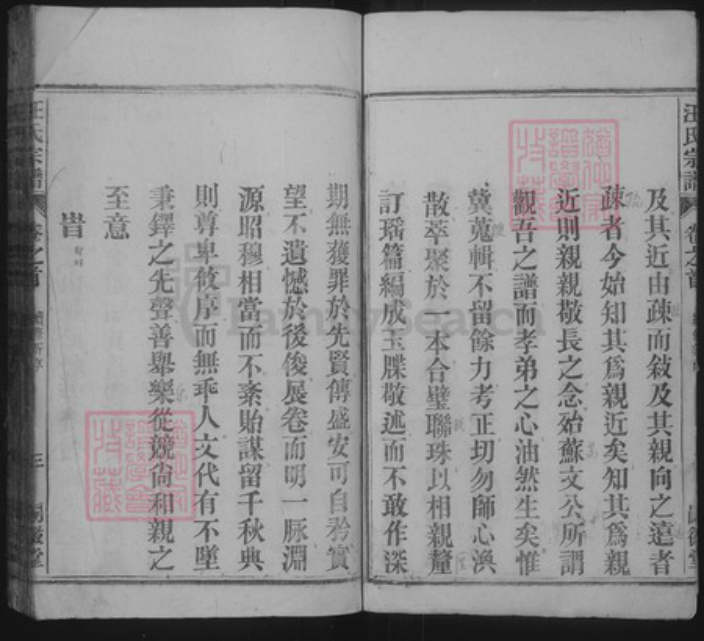 及其近由疎而敘及其親向之遠者
疎者今始知其爲親近矣知其爲親
近則親親敬長之念殆蘇文公所謂
觀吾之譜而孝弟之心油然生矣惟
冀蒐輯不留餘力考正切勿師心渙
散萃聚於一本合璧聯珠以相親釐
訂瑶篇編成玉牒敬述而不敢作深
期無獲罪於先賢傳盛安可自矜實
望不遺憾於後俊展卷而明一脉淵
源昭穆相當而不紊貽謀留千秋典
則尊卑攸序而無乖人文代有不墜
秉鐸之先聲善舉樂從競尚和親之
至意
旹
汪氏宗譜
卷之首
三
汪氏宗譜
卷之首
FamilySearch